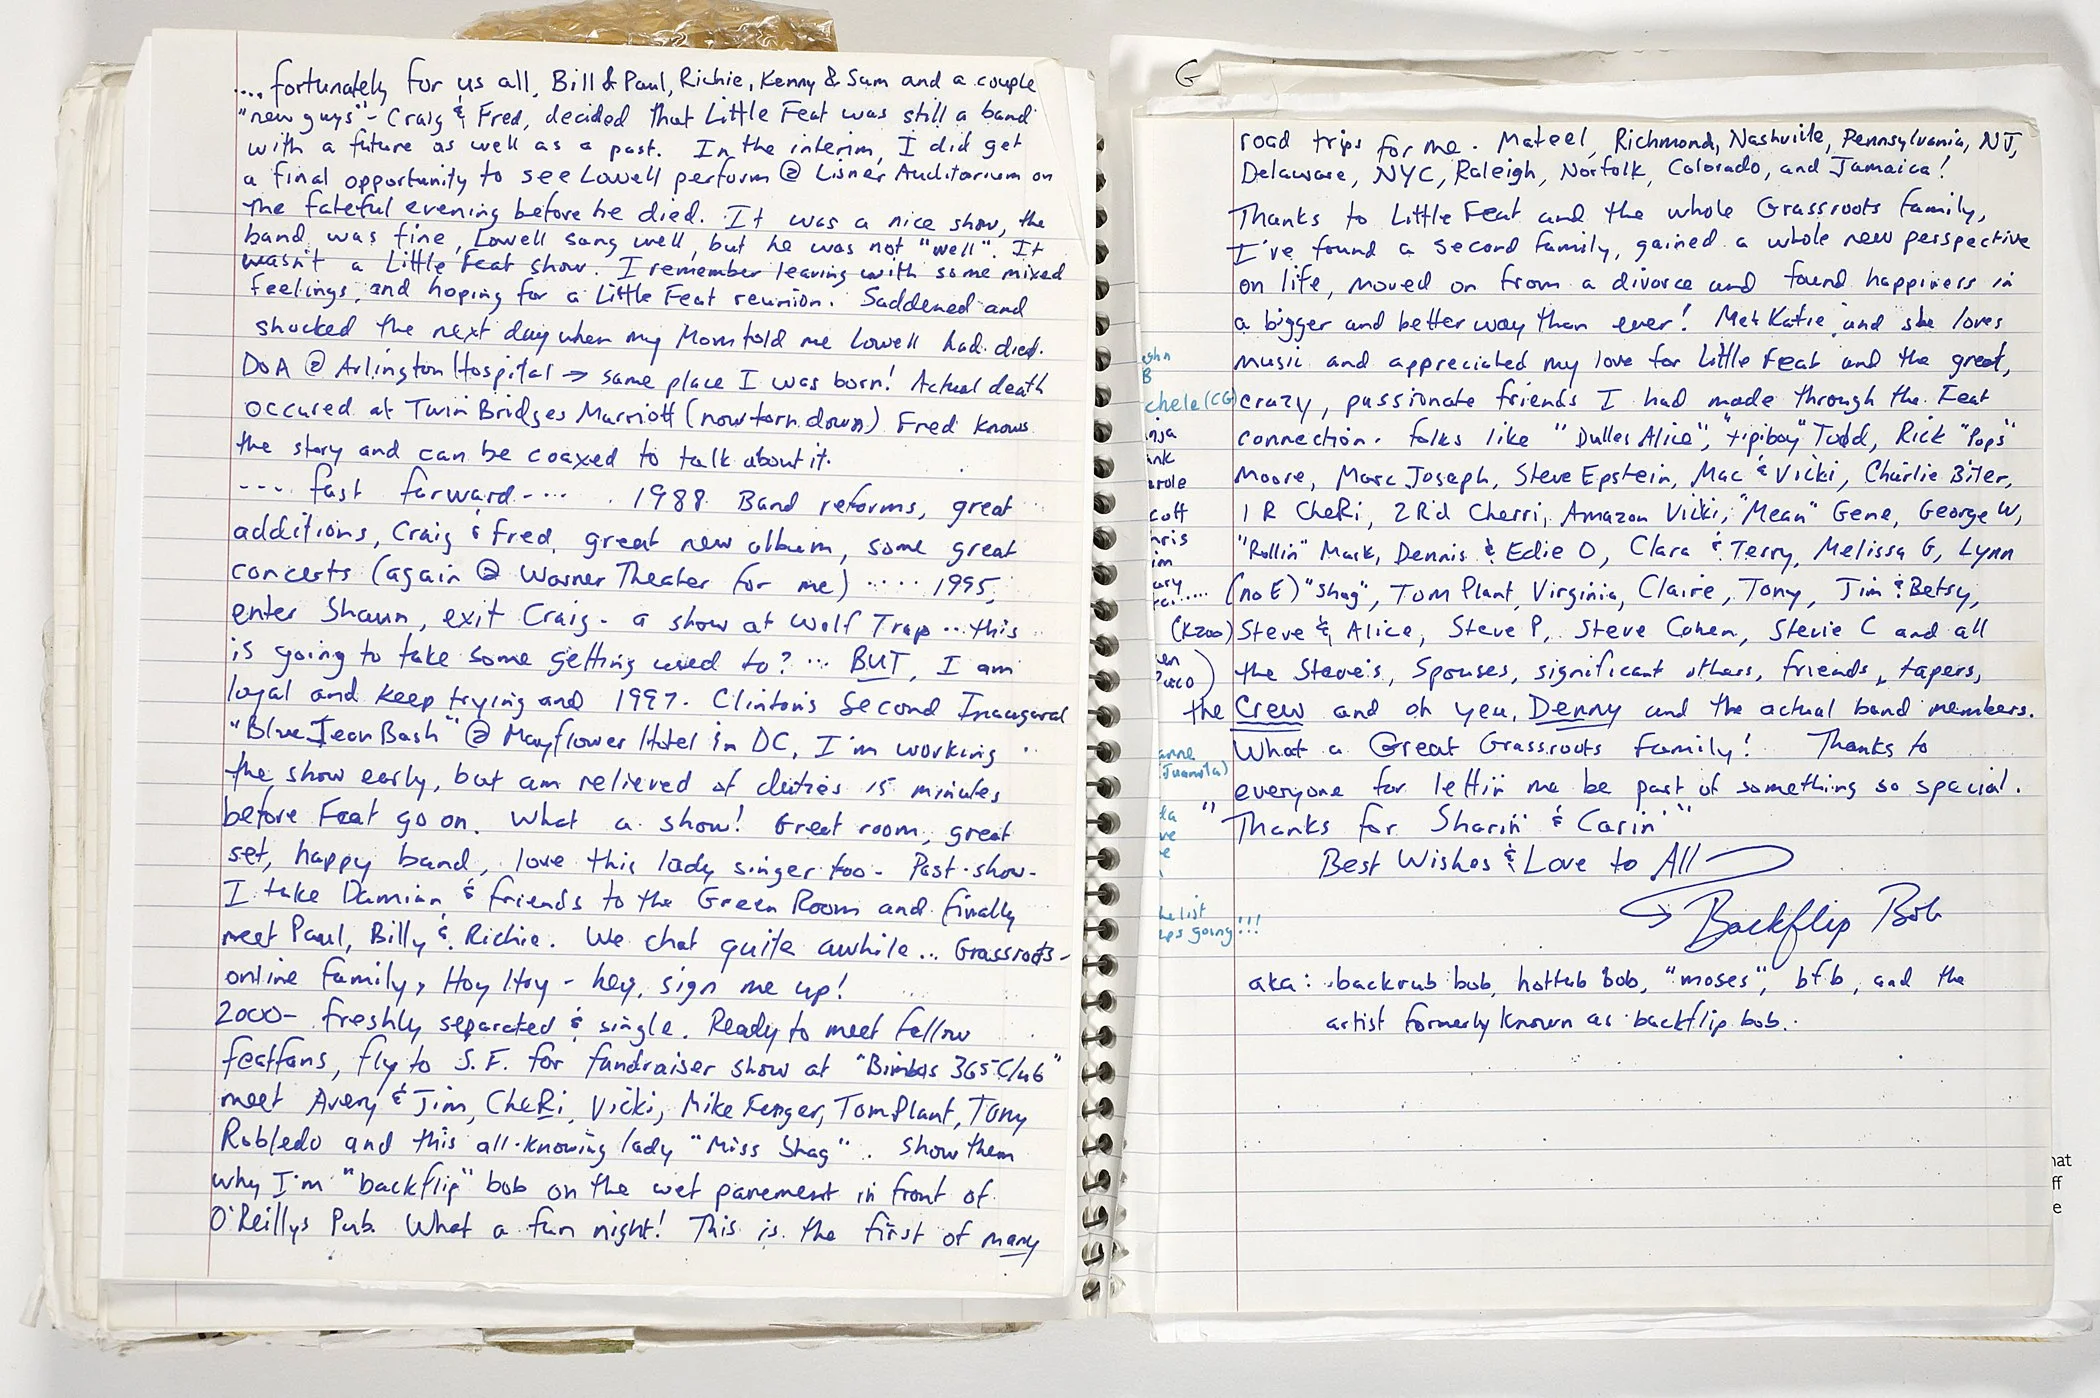 .... fortunately for us all, Bill & Paul, Richie, Kenny & Sam and a couple
"new guys" - Craig & Fred, decided that Little Feat was still a band
with a future as well as a past. In the interim, I did get
a final opportunity to see Lowell perform @ Lisner Auditorium on
the fateful evening before he died. It was a nice show, the
band was fine, Lowell sang well, but he was not "well". It
wasn't a Little Feat show. I remember leaving with some mixed
feelings, and hoping for a Little Feat reunion. Saddened and
shocked the next day when my Mom told me Lowell had died.
DoA @ Arlington Hospital → same place I was born! Actual death
occured at Twin Bridges Marriott (now torn down) Fred knows
the story and can be coaxed to talk about it.
--- fast forward-... . 1988. Band reforms, great
additions, Craig & Fred, great new album, some great
concerts (again @ Warner Theater for me) ..... 1995,
enter Shaun, exit Craig - a show at Wolf Trap ... this
is going to take some getting used to? ... BUT, I am
loyal and keep trying and 1997. Clinton's Second Inaugural
"Blue Jean Bash" @ Mayflower Hotel in DC, I'm working
the show early, but am relieved of duties 15 minutes
before Feat go on. What a show! Great room, great
set, happy band, love this lady singer too - Past-show-
I take Damian & friends to the Green Room and finally
meet Paul, Billy & Richie. We chat quite awhile ... Grassroots-
online family, Hoy Hoy - hey, sign me up!
2000 - freshly separated & single. Ready to meet fellow
featfans, fly to S.F. for fundraiser show at "Bimbos 365 Club"
meet Avery & Jim, CheRi, Vicki, Mike Fenger, Tom Plant, Tony
Robledo and this all-knowing lady "Miss Shag". Show them
why I'm "backflip" bob on the wet pavement in front of
O'Reillys Pub. What a fun night! This is the first of many
G
road trips for me. Mateel, Richmond, Nashville, Pennsylvania, NJ,
Delaware, NYC, Raleigh, Norfolk, Colorado, and Jamaica!
Thanks to Little Feat and the whole Grassroots family,
I've found a second family, gained a whole new perspective
on life, moved on from a divorce and found happiness in
a bigger and better way than ever! Met Katie and she loves
music and appreciated my love for Little Feat and the great,
crazy, passionate friends I had made through the Feat
connection. folks like "Dulles Alice", "tipiboy" Todd, Rick "Pops"
Moore, Marc Joseph, Steve Epstein, Mac & Vicki, Charlie Biler,
1 R CheRi, 2 R'd Cherri, Amazon Vicki, "Mean" Gene, George W,
"Rollin" Mark, Dennis & Edie O, Clara & Terry, Melissa G, Lynn
(no E) "Shag", Tom Plant, Virginia, Claire, Tony, Jim & Betsy,
(Kzoo) Steve & Alice, Steve P, Steve Cohen, Stevie C and all
the Steve's, Spouses, significant others, friends, tapers,
the Crew and oh yea, Denny and the actual band members.
What a Great Grassroots Family! Thanks to
everyone for lettin me be part of something so special.
"Thanks for Sharin' & Carin'"
Best Wishes & Love to All
Backflip Bob
aka: backrub bob, hottub bob, "moses", bfb, and the
artist formerly known as backflip bob.
chele (CG)
(Juanita)
going!!!